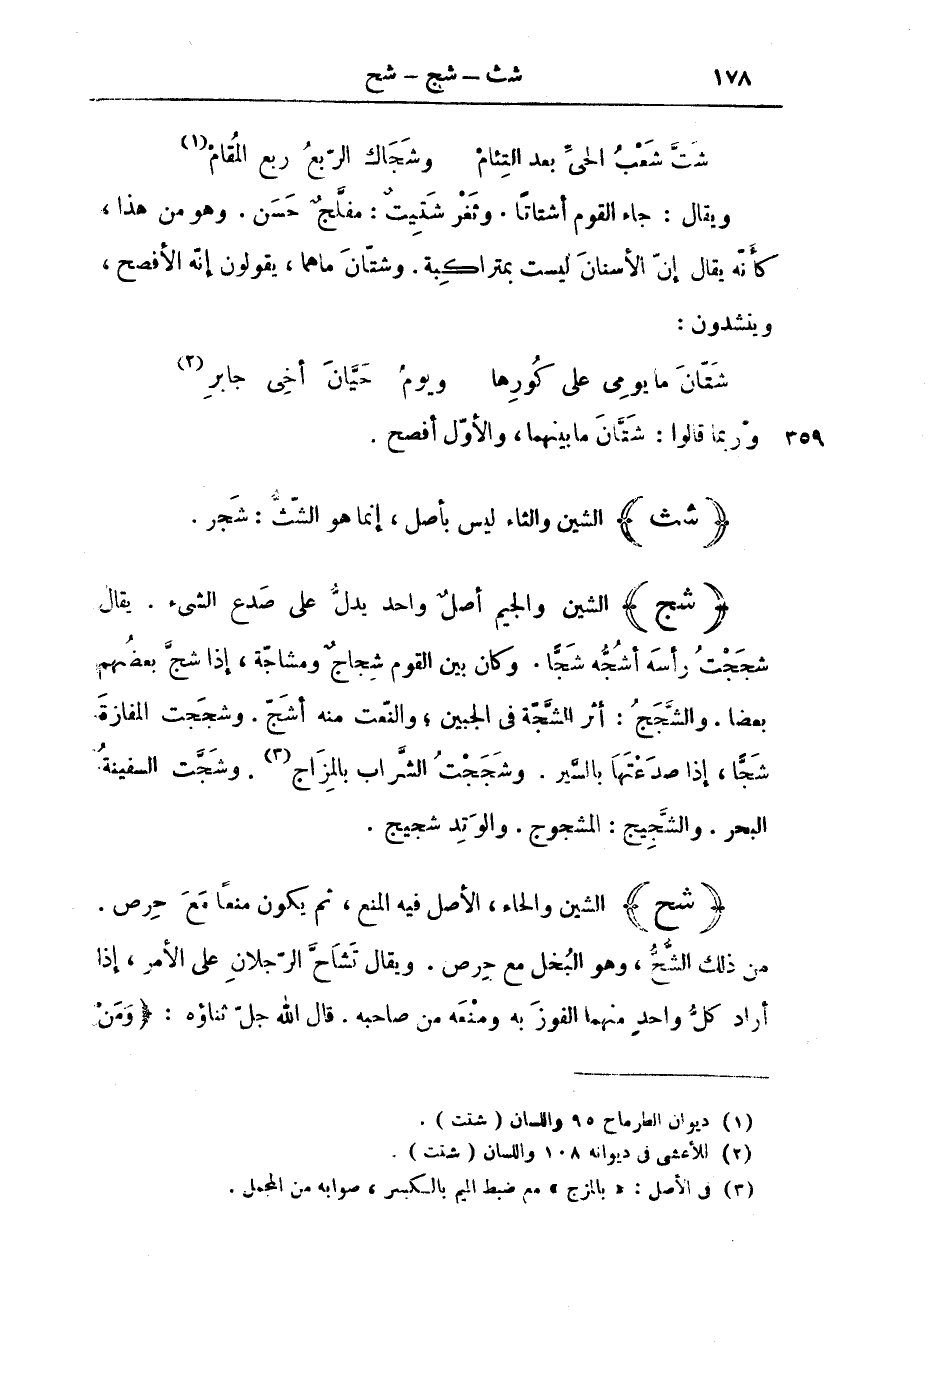 ١٧٨ شث – شج – شح
شَتَّ شَعْبُ الحىِّ بعد التِئامْ وشَجَاك الرّبعُ ربع المُقامْ(١)
ويقال : جاء القوم أشتاتًا . وثَغْر شَتِيتٌ : مفلَّجٌ حَسَن . وهو من هذا ،
كأَنّه يقال إنّ الأسنانَ ليست بمتراكِبة . وشتّانَ ماهما ، يقولون إنّه الأفصح ،
وينشدون :
شَتّانَ ما يومِى على كُورِها ويومُ حَيَّانَ أخِى جابرِ(٢)
٣٥٩ وربما قالوا : شَتَّانَ مابينهما ، والأوّل أفصح .
﴿ شث ﴾ الشين والثاء ليس بأصل ، إنما هو الشّثّ : شَجر .
﴿ شج ﴾ الشين والجيم أصلٌ واحد يدلُّ على صَدع الشىء . يقال
شجَجْتُ رأسَه أشُجُّه شَجًّا . وكان بين القوم شِجاجٌ ومشاجّة ، إذا شجَّ بعضُهم
بعضا . والشَّجَجُ : أثر الشَّجّة فى الجبين ؛ والنّعت منه أشَجّ . وشجَجت المفازةَ
شَجًّا ، إذا صدَعْتَهَا بالسَّير . وشَجَجْتُ الشَّراب بالمِزَاج(٣) . وشَجَّت السفينةُ
البحر . والشَّجِيج : المشجوج . والوَتِد شجيج .
﴿ شح ﴾ الشين والحاء ، الأصل فيه المنع ، ثم يكون منعًا مَعَ حِرص .
من ذلك الشُّحُّ ، وهو البُخل مع حِرص . ويقال تَشَاحَّ الرّجلانِ على الأمر ، إذا
أراد كلُّ واحدٍ منهما الفوزَ به ومنْعَه من صاحبه . قال الله جلّ ثناؤه : ﴿ وَمَنْ
(١) ديوان الطرماح ٩٥ واللسان ( شتت ) .
(٢) للأعشى فى ديوانه ١٠٨ واللسان ( شتت ) .
(٣) فى الأصل : « بالمزج » مع ضبط الميم بالكسر ، صوابه من المجمل .